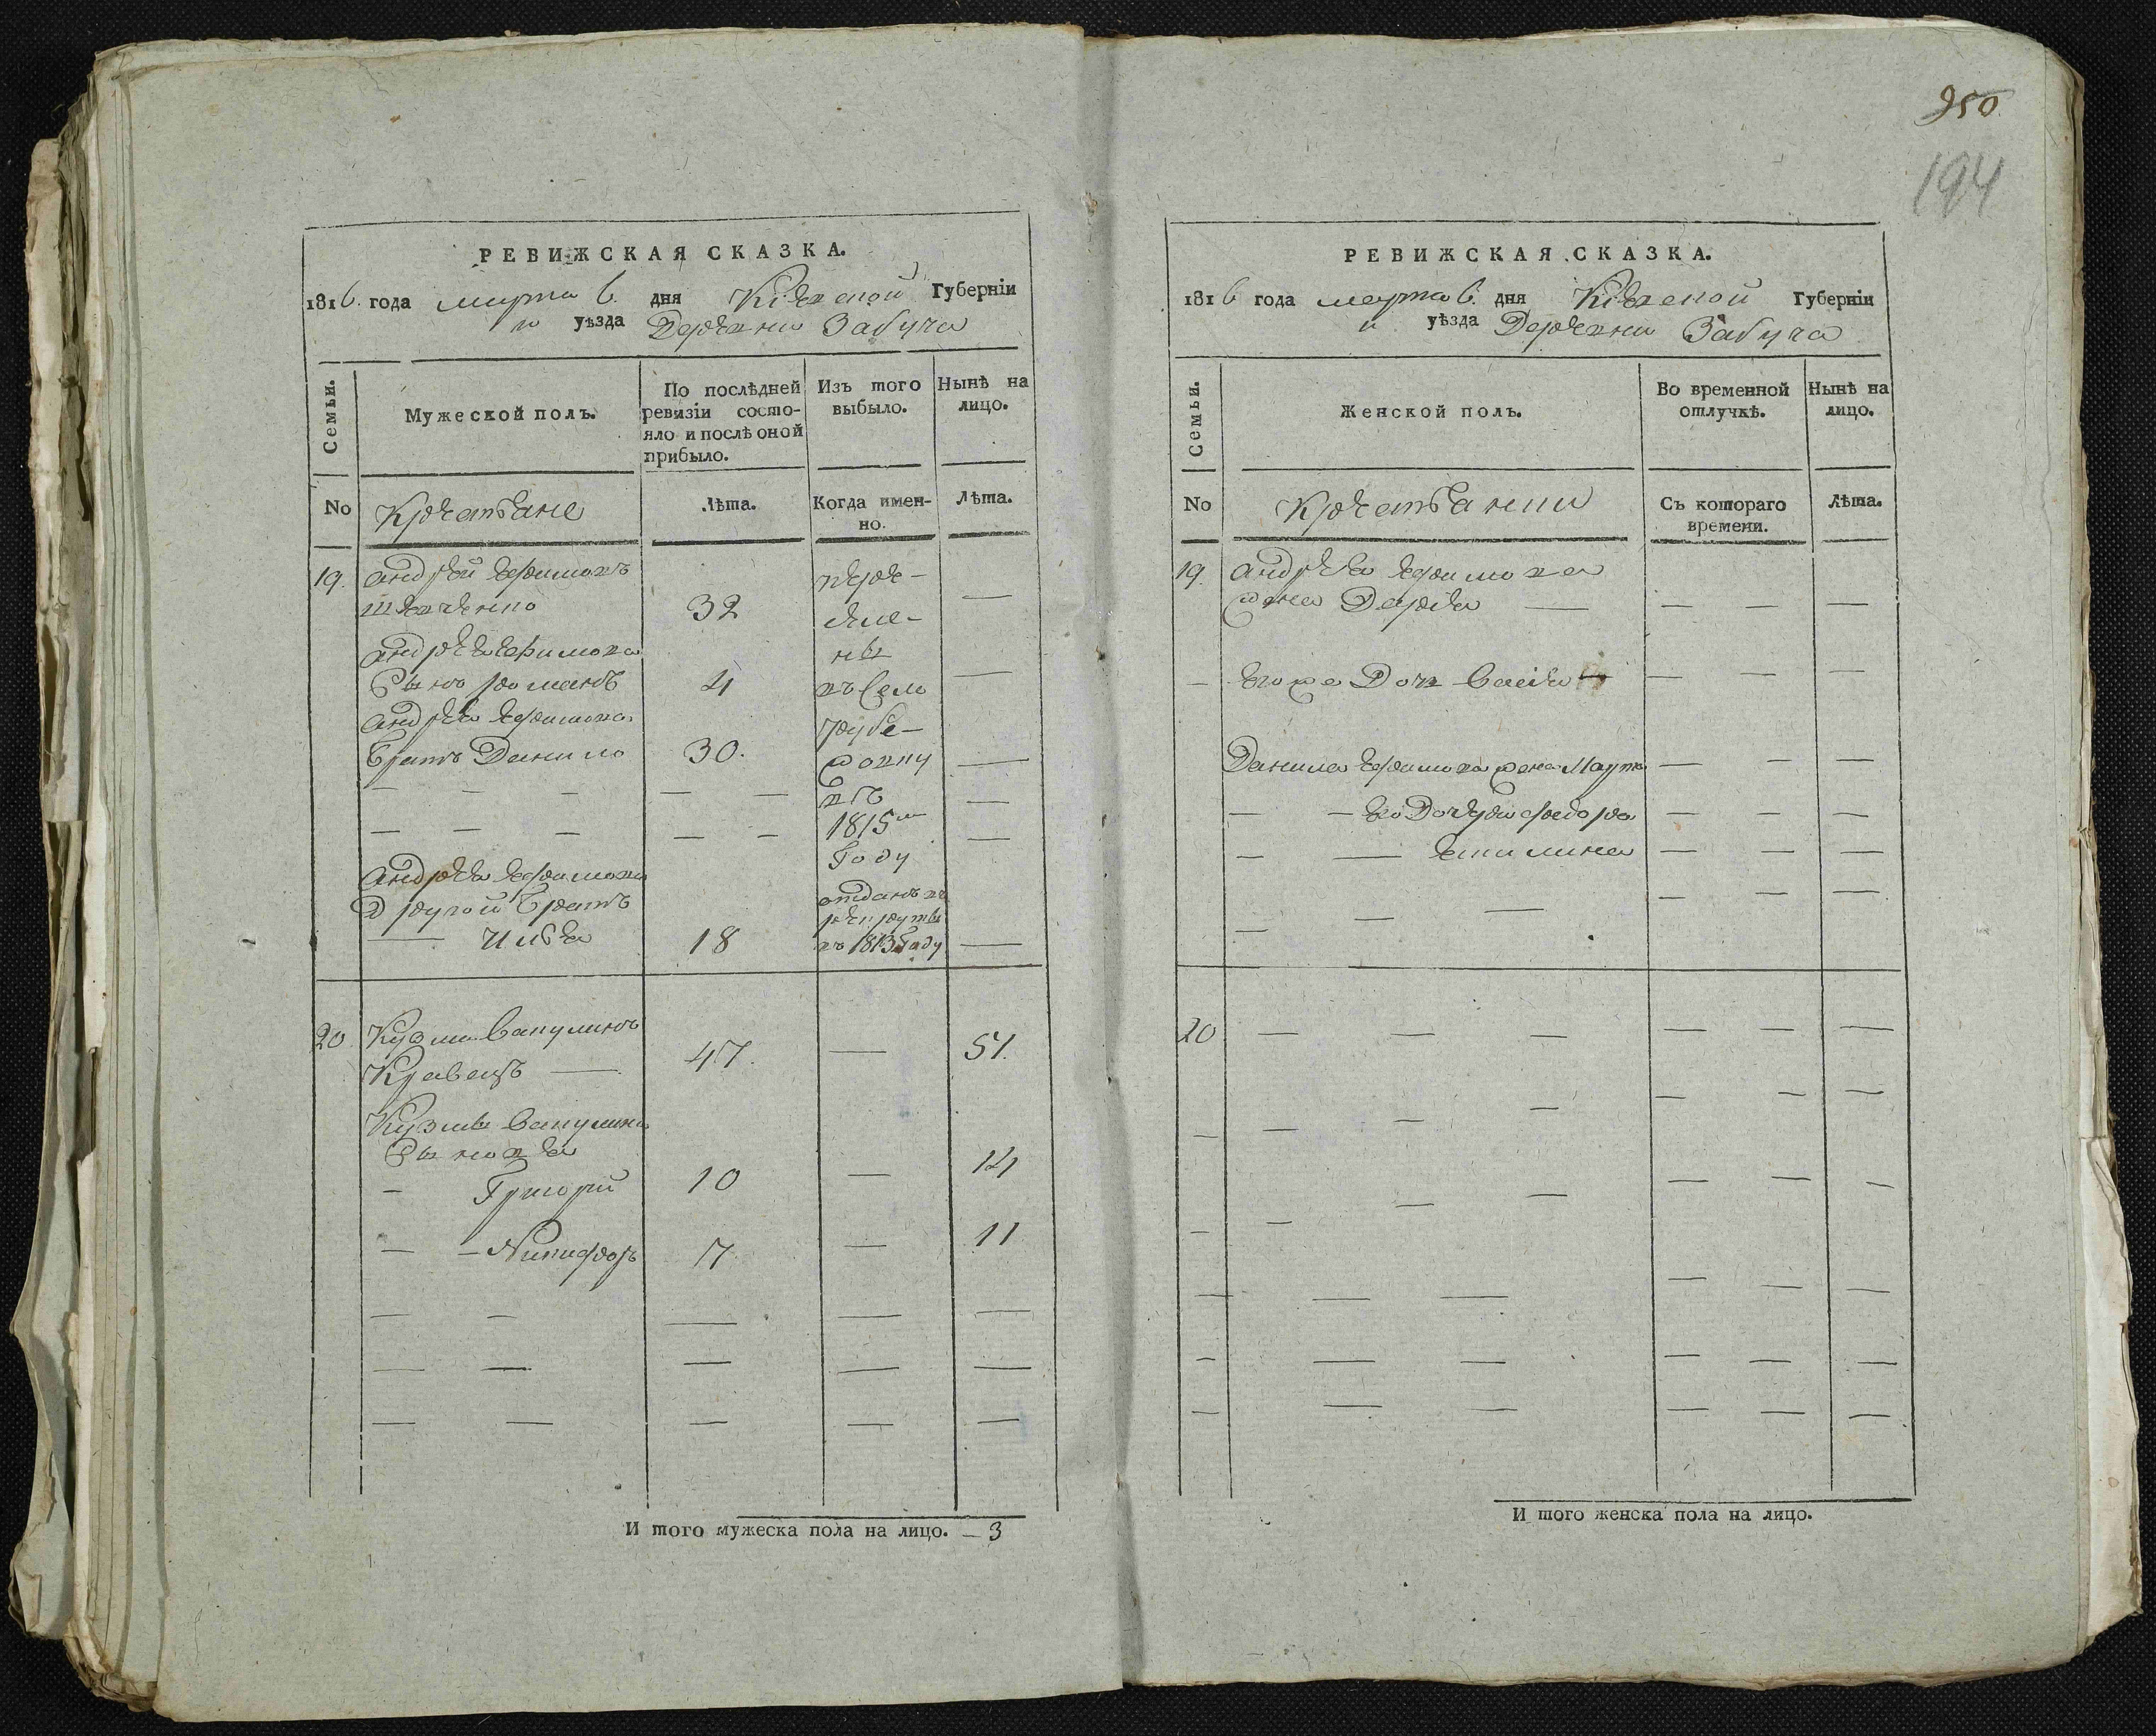 950
194
РЕВИЖСКАЯ СКАЗКА.
1816. года марта 6. дня Кіевской Губерніи
и уѣзда Деревни Забуча
Семьи.
Мужеской полъ.
По послѣдней ревизіи состо-
яло и послѣ оной прибыло.
Изъ того выбыло.
Нынѣ на лицо.
No
Крестьяне
Лѣта.
Когда имен-
но.
Лѣта.
19. Андрей Ефимовъ
Шевченко 32 —
Андрея Ефимова
Сынъ Романъ 4 —
Андрея Ефимова
Братъ Данило 30. —
пере-
ве-
ны
въ село
жовку
въ
1815м
Году
Андрея Ефимова
Другой Братъ
— Илья 18 —
отданъ въ
рекруты
въ 1813 Году
20 Кузма Вакулинъ
Кравецъ — 47. — 51.
Кузмы Вакулина
Сыновья
- Григорій 10 — 14
— — Никифоръ 7 — 11
И того мужеска пола на лицо. — 3
РЕВИЖСКАЯ СКАЗКА.
1816 года марта 6. дня Кіевской Губерніи
и уѣзда Деревни Забуча
Семьи.
Женской полъ.
Во временной отлучкѣ.
Нынѣ на лицо.
No
Крестьянки
Съ котораго времени.
Лѣта.
19. Андрея Ефимова
жена Дарія — — — —
- его же Дочь — — —
Данила Ефимова жена Марта — — —
— — его Дочери Федора — — —
— — — — —
20 — — — — — —
И того женска пола на лицо.